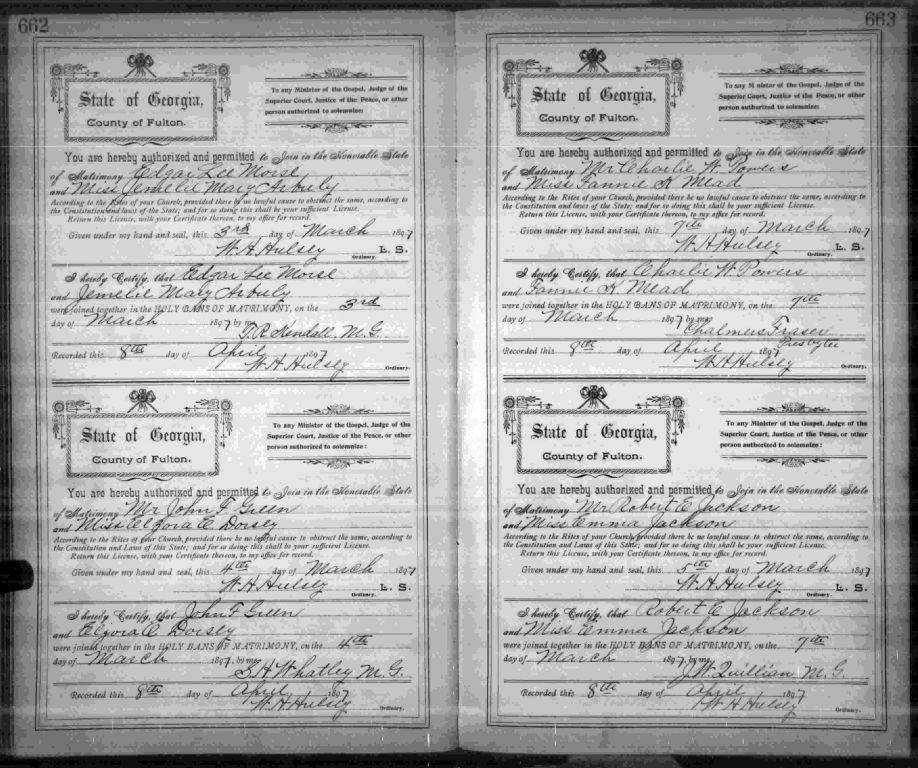 662
State of Georgia,
County of Fulton.
To any Minister of the Gospel, Judge of the
Superior Court, Justice of the Peace, or other
person authorized to solemnize:
You are hereby authorized and permitted to Join in the Honorable State
of Matrimony Edgar Lee Morse
and Miss Jemelie Mary Arbuly
According to the Rites of your Church, provided there be no lawful cause to obstruct the same, according to
the Constitution and laws of the State; and for so doing this shall be your sufficient License.
Return this License, with your Certificate thereon, to my office for record.
Given under my hand and seal, this 3rd day of March 1897
W. H. Hulsey L. S.
Ordinary.
I hereby Certify, that Edgar Lee Morse
and Jemelie Mary Arbuly
were joined together in the HOLY BANS OF MATRIMONY, on the 3rd
day of March 1897 by me,
T. R. Kendall, M. G.
Recorded this 8th day of April 1897
W. H. Hulsey
Ordinary.
State of Georgia,
County of Fulton.
To any Minister of the Gospel, Judge of the
Superior Court, Justice of the Peace, or other
person authorized to solemnize:
You are hereby authorized and permitted to Join in the Honorable State
of Matrimony Mr John F Green
and Miss Elzora C Dorsey
According to the Rites of your Church, provided there be no lawful cause to obstruct the same, according to
the Constitution and Laws of this State; and for so doing this shall be your sufficient License.
Return this License, with your Certificate thereon, to my office for record.
Given under my hand and seal, this 4th day of March 1897
W. H. Hulsey L. S.
Ordinary.
I hereby Certify, that John F Green
and Elzora C Dorsey
were joined together in the HOLY BANS OF MATRIMONY, on the 4th
day of March 1897, by me,
S. H. Whatley M. G.
Recorded this 8th day of April 1897
W. H. Hulsey
Ordinary.
663
State of Georgia,
County of Fulton.
To any Minister of the Gospel, Judge of the
Superior Court, Justice of the Peace, or other
person authorized to solemnize:
You are hereby authorized and permitted to Join in the Honorable State
of Matrimony Mr Charlie W. Powers
and Miss Fannie K Mead
According to the Rites of your Church, provided there be no lawful cause to obstruct the same, according to the
Constitution and laws of the State; and for so doing this shall be your sufficient License.
Return this License, with your Certificate thereon, to my office for record.
Given under my hand and seal, this 7th day of March 1897
W. H. Hulsey L. S.
Ordinary.
I hereby Certify, that Charlie W Powers
and Fannie K Mead
were joined together in the HOLY BANS OF MATRIMONY, on the 7th
day of March 1897 by me,
Chalmers Fraser
Presbyter
Recorded this 8th day of April 1897
W. H. Hulsey
Ordinary.
State of Georgia,
County of Fulton.
To any Minister of the Gospel, Judge of the
Superior Court, Justice of the Peace, or other
person authorized to solemnize:
You are hereby authorized and permitted to Join in the Honorable State
of Matrimony Mr Robert E Jackson
and Miss Emma Jackson
According to the Rites of your Church, provided there be no lawful cause to obstruct the same, according to
the Constitution and Laws of this State; and for so doing this shall be your sufficient License.
Return this License, with your Certificate thereon, to my office for record.
Given under my hand and seal, this 5th day of March 1897
W. H. Hulsey L. S.
Ordinary.
I hereby Certify, that Robert E Jackson
and Miss Emma Jackson
were joined together in the HOLY BANS OF MATRIMONY, on the 7th
day of March 1897, by me,
J. W. Quillian M. G.
Recorded this 8th day of April 1897
W. H. Hulsey
Ordinary.